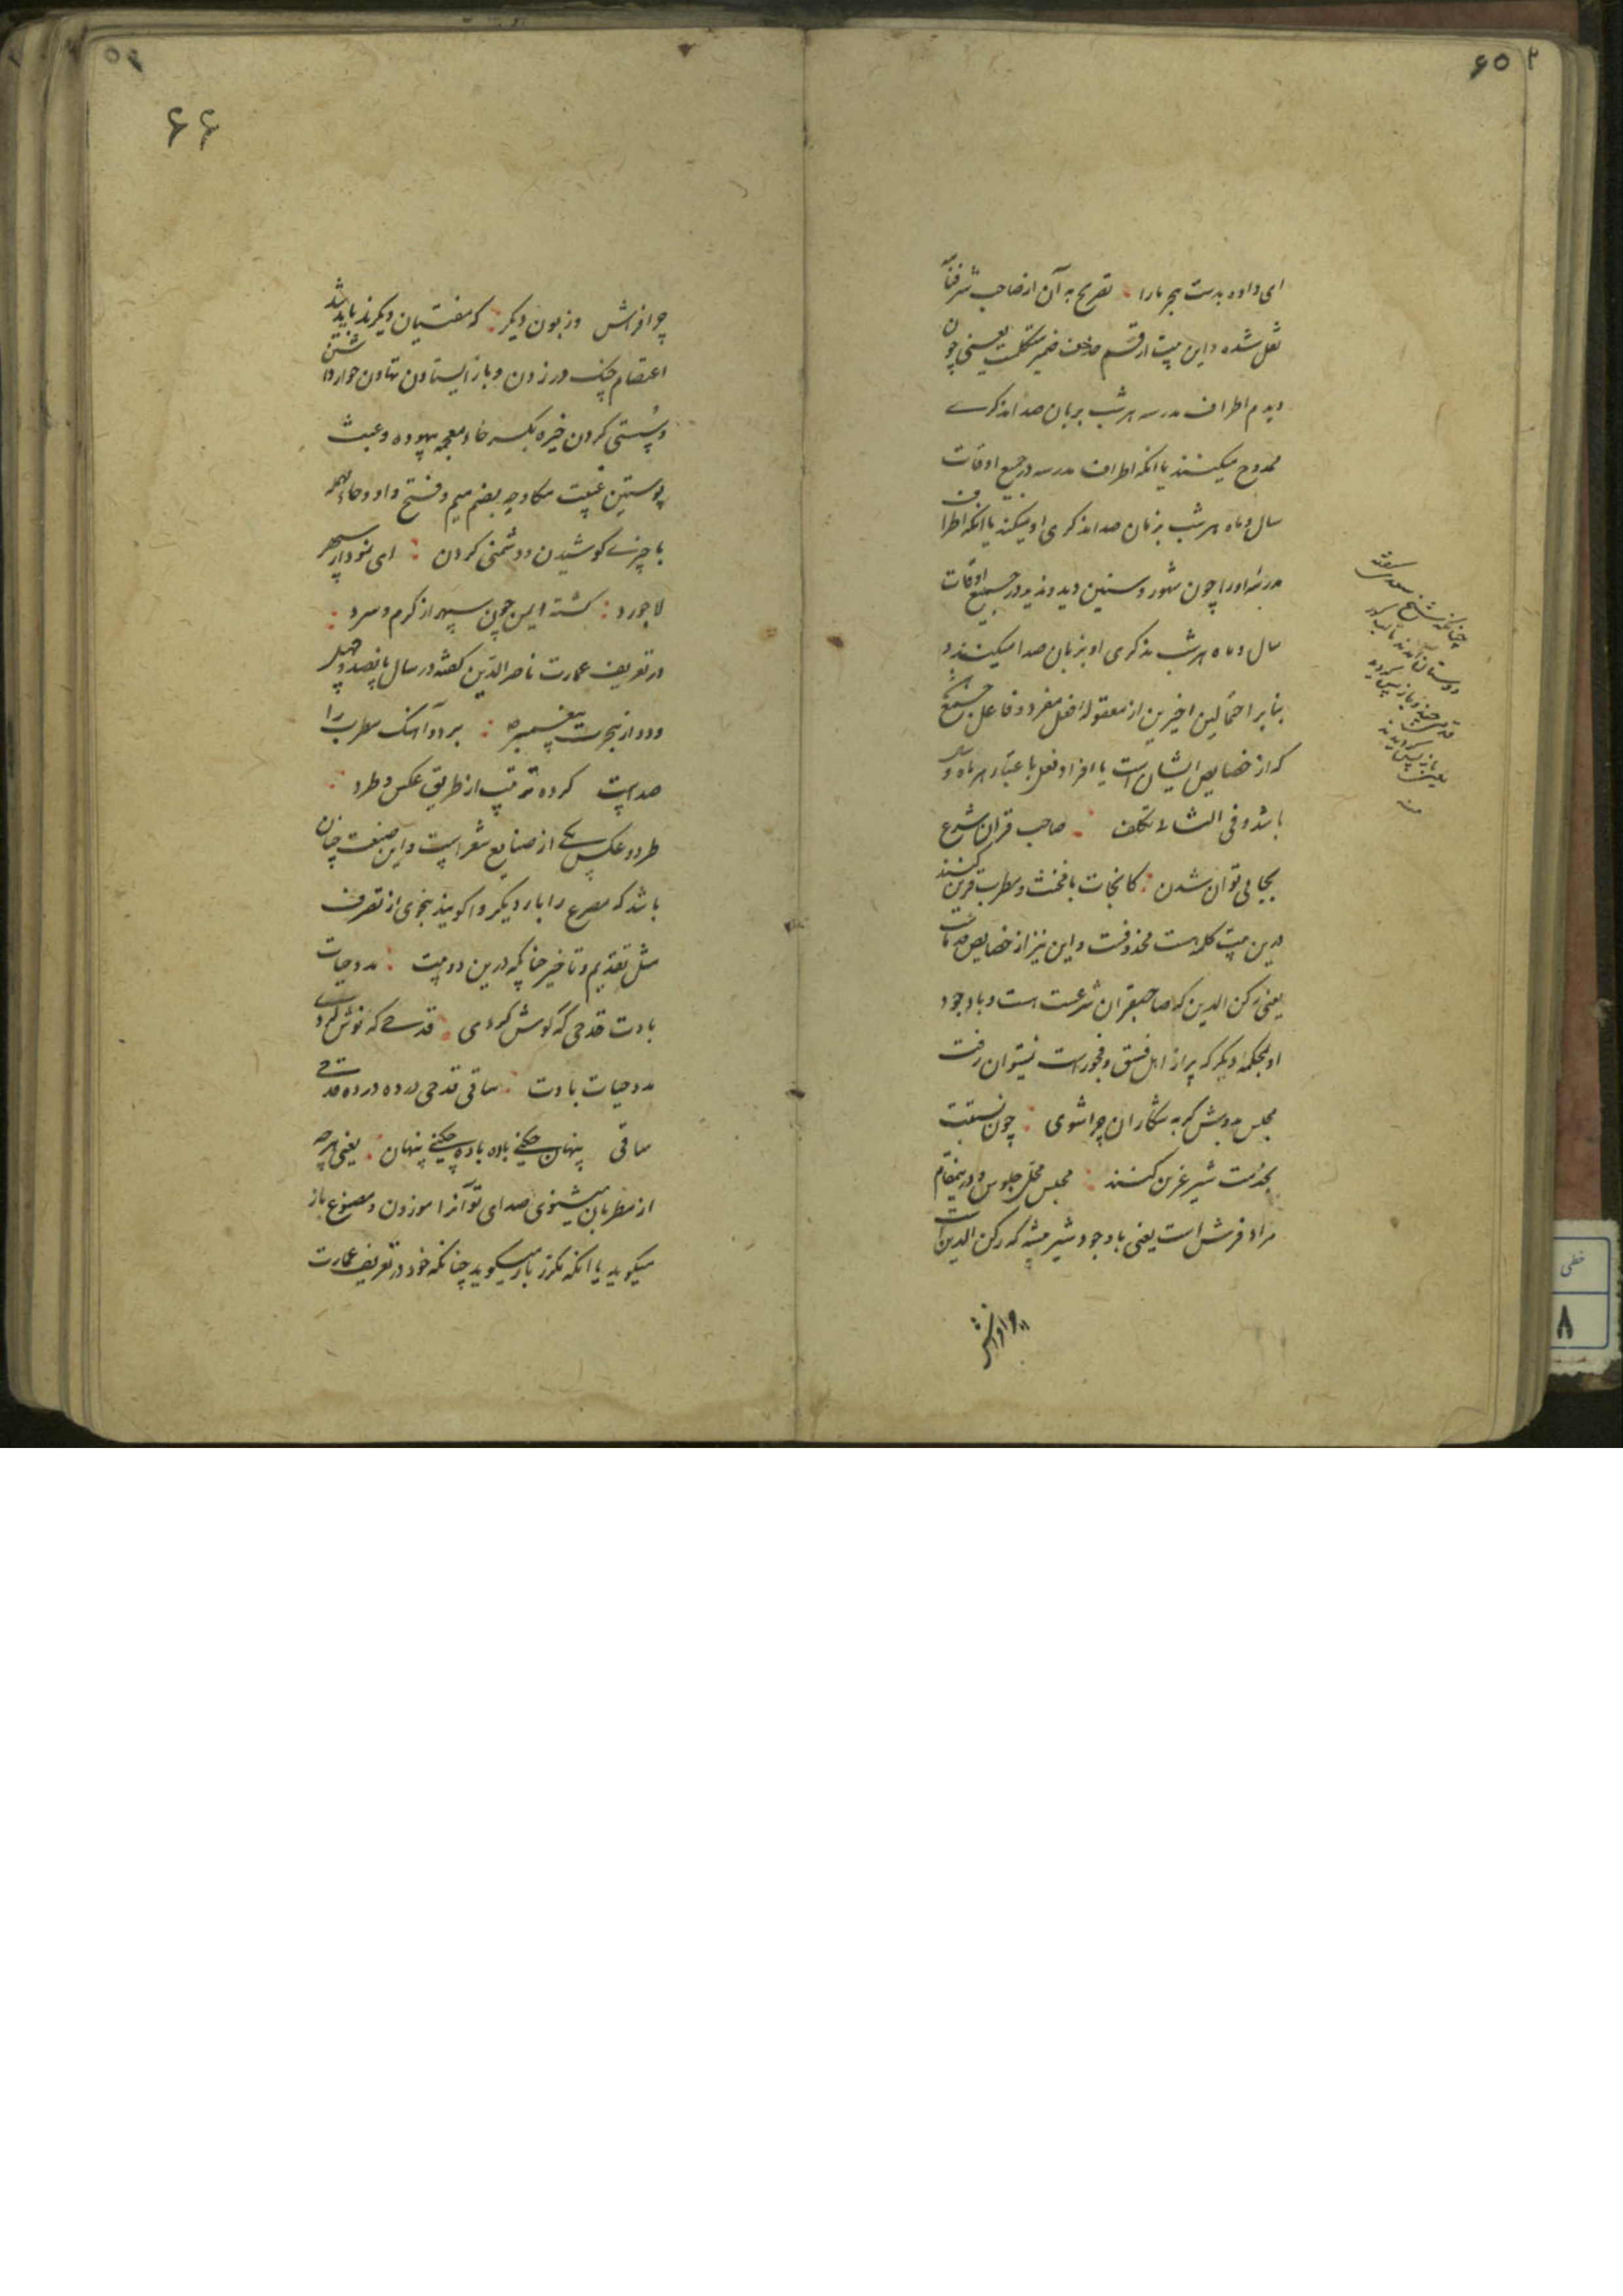 ۶۵
ای داده بدست هجر ما را تصریح به آن از صاحب شرفنامه
نقل شده و این بیت از قسم حذف ضمیر متکلمست یعنی چون
دیدم اطراف مدرسه هر شب بزبان صدا مذکری
ممدوح میکنند یا آنکه اطراف مدرسه در جمیع اوقات
سال و ماه هر شب بزبان صدا مذکری او میکند یا آنکه اطراف
مدرسه او را چون شهور و سنین دید و ندید در جمیع اوقات
سال و ماه هر شب مذکری او بزبان صدا میکنند و
بنابر احتمالین اخیرین از مقوله فعل مفرد و فاعل جمع
که از خصایص ایشان است یا افراد فعل باعتبار هر ماه و سال
باشد و فی الثالث تکلف صاحب قران شرع
بجایی توان شدن کانجات با مخنث و مطرب قرین کنند
درین بیت کلمه است محذوفست و این نیز از خصایص قدماست
یعنی رکن الدین که صاحبقران شرعست است و باوجود
او بمحکمه دیگر که پر از اهل فسق و فجور است نمیتوان رفت
مجلس بدوش گربه شکاران چرا شوی چون نسبتت
بخدمت شیر عرین کنند مجلس محل جلوس و درینمقام
مراد فرش است یعنی باوجود شیر بیشه که رکن الدین است
چنانکه شیخ سعدی گفته
دوستان آمدند تا لب گور
قدمی چند و باز پس گردید
یعنی باز پس گردیدند
منه
۶۶
چو افراش و زبون دیگر که مفتیان دیگرند باید شد
اعتصام چنگ در زدن و باز ایستادن تهاون خوار داشتن
و سستی کردن خیره بکسر خاء معجمه بیهوده و عبث
پوستین غیبت مکاوحه بضم میم و فتح واو و حاء مهمله
با چیزی کوشیدن و دشمنی کردن ای نمودار سپهر
لاجورد گشته ایمن چون سپهر از گرم و سرد
در تعریف عمارت ناصر الدین گفته در سال پانصد و چهل
و دو از هجرت پیغمبر ص بر دو آهنگ مطرب را
صدایت کرده ترتیب از طریق عکس و طرد
طرد و عکس یکی از صنایع شعر است و این صنعت چنان
باشد که مصرع را بار دیگر واگویند بنحوی از تصرف
مثل تقدیم و تاخیر چنانکه درین دو بیت مدد حیات
بادت قدحی که نوش کردی قدحی که نوش کردی
مدد حیات بادت ساقی قدحی در ده در ده قدحی
ساقی پنهان چکنی باده باده چکنی پنهان یعنی هر چه
از مطربان میشنوی صدای تو آنرا موزون و مصنوع باز
میگوید یا آنکه مکرر باز میگوید چنانکه خود در تعریف عمارت
خطی
۸